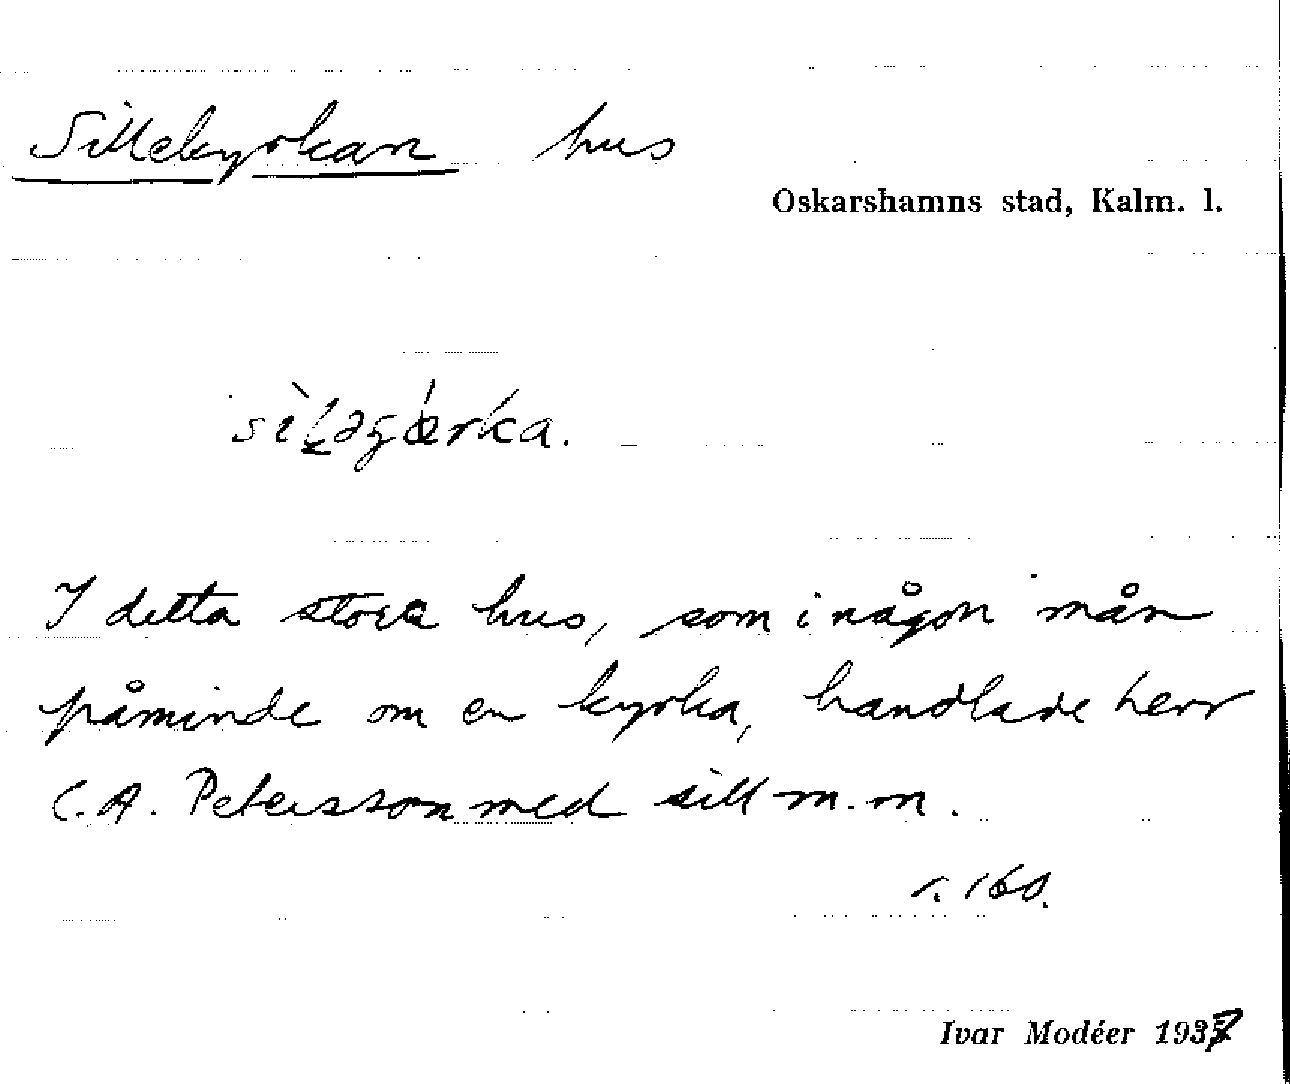 Sillekyrkan hus
Oskarshamns stad, Kalm. l.
I detta stora hus, som i någon mån
påminde om en kyrka, handlade herr
C. A. Petersson med sill m. m.
s. 160.
Ivar Modéer 1937